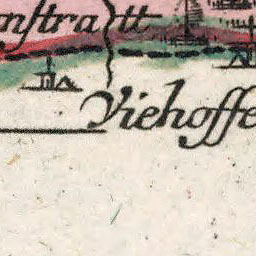 nstratt
Viehoffe